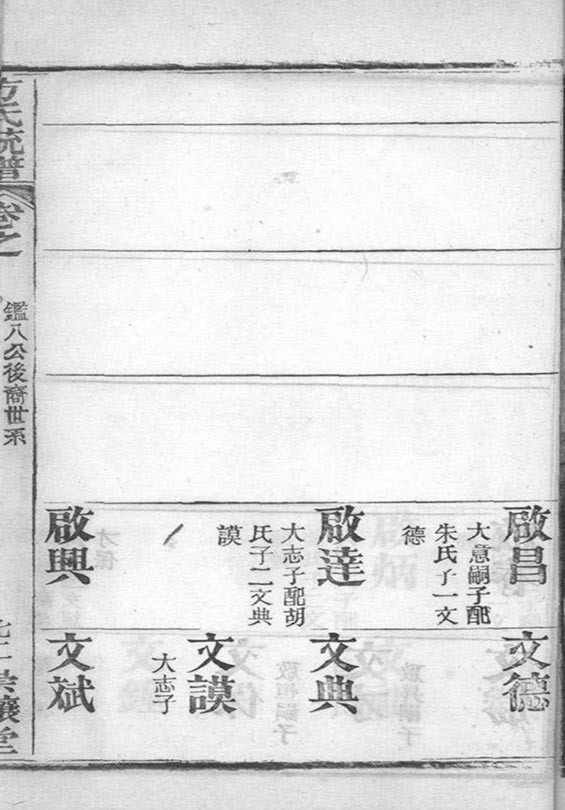 啟昌
大意嗣子配
朱氏子一文
德
啟達
大志子配胡
氏子二文典
謨
啟興
文德
文典
文謨
大志子
文斌
方氏統譜
卷之
鑑八公後裔世系
崇讓堂